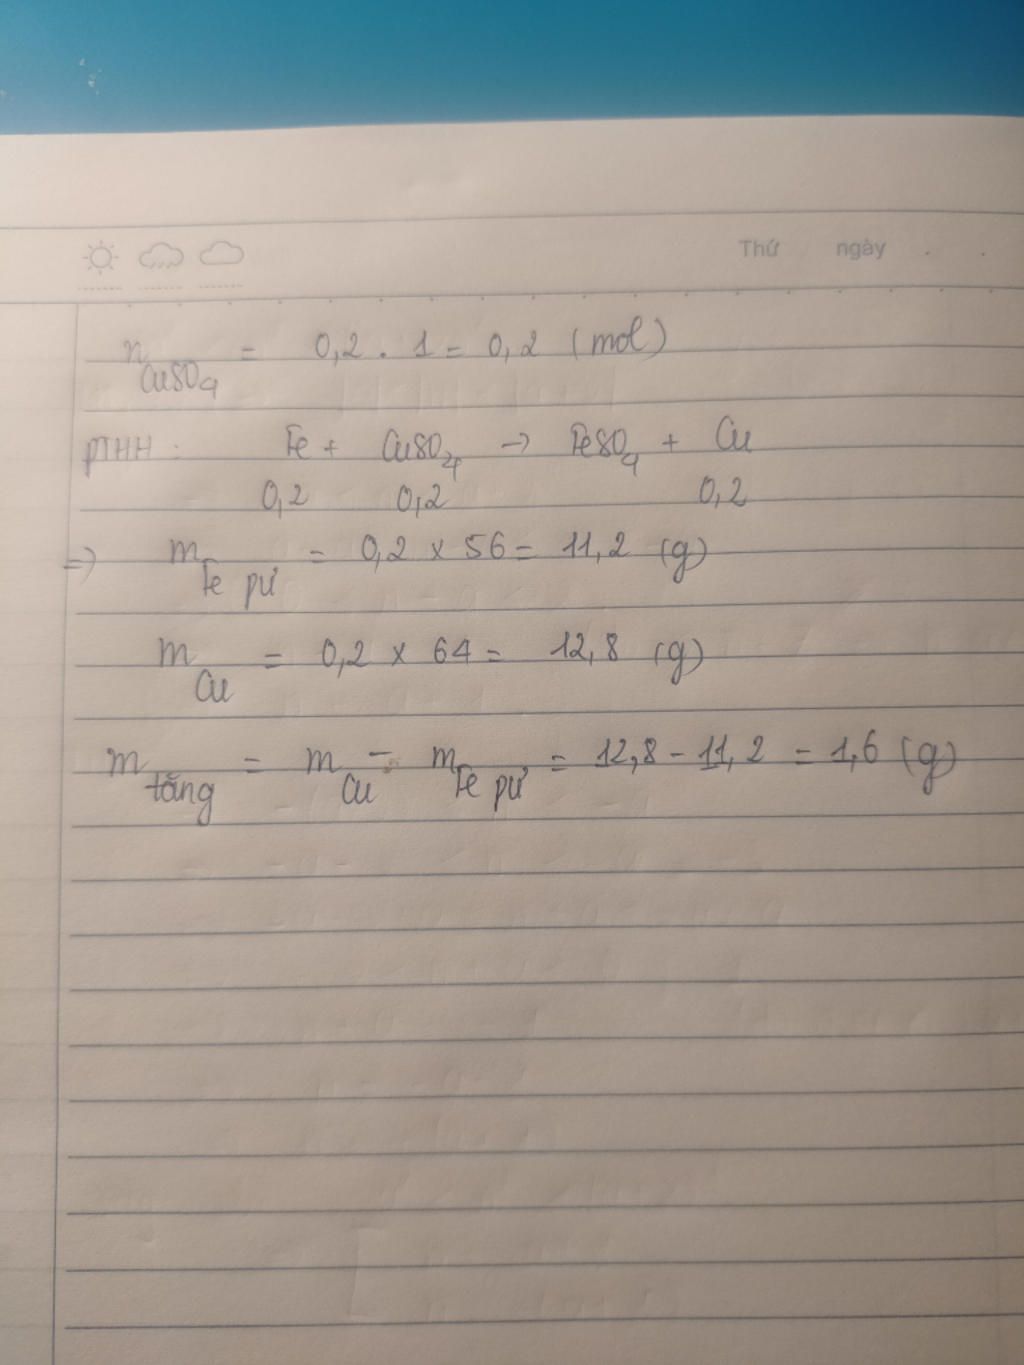 Thứ ngày . .
n CuSO4 = 0,2 . 1 = 0,2 (mol)
PTHH : Fe + CuSO4 → FeSO4 + Cu
0,2 0,2 0,2
=> m Fe pư = 0,2 x 56 = 11,2 (g)
m Cu = 0,2 x 64 = 12,8 (g)
m tăng = m Cu - m Fe pư = 12,8 - 11,2 = 1,6 (g)